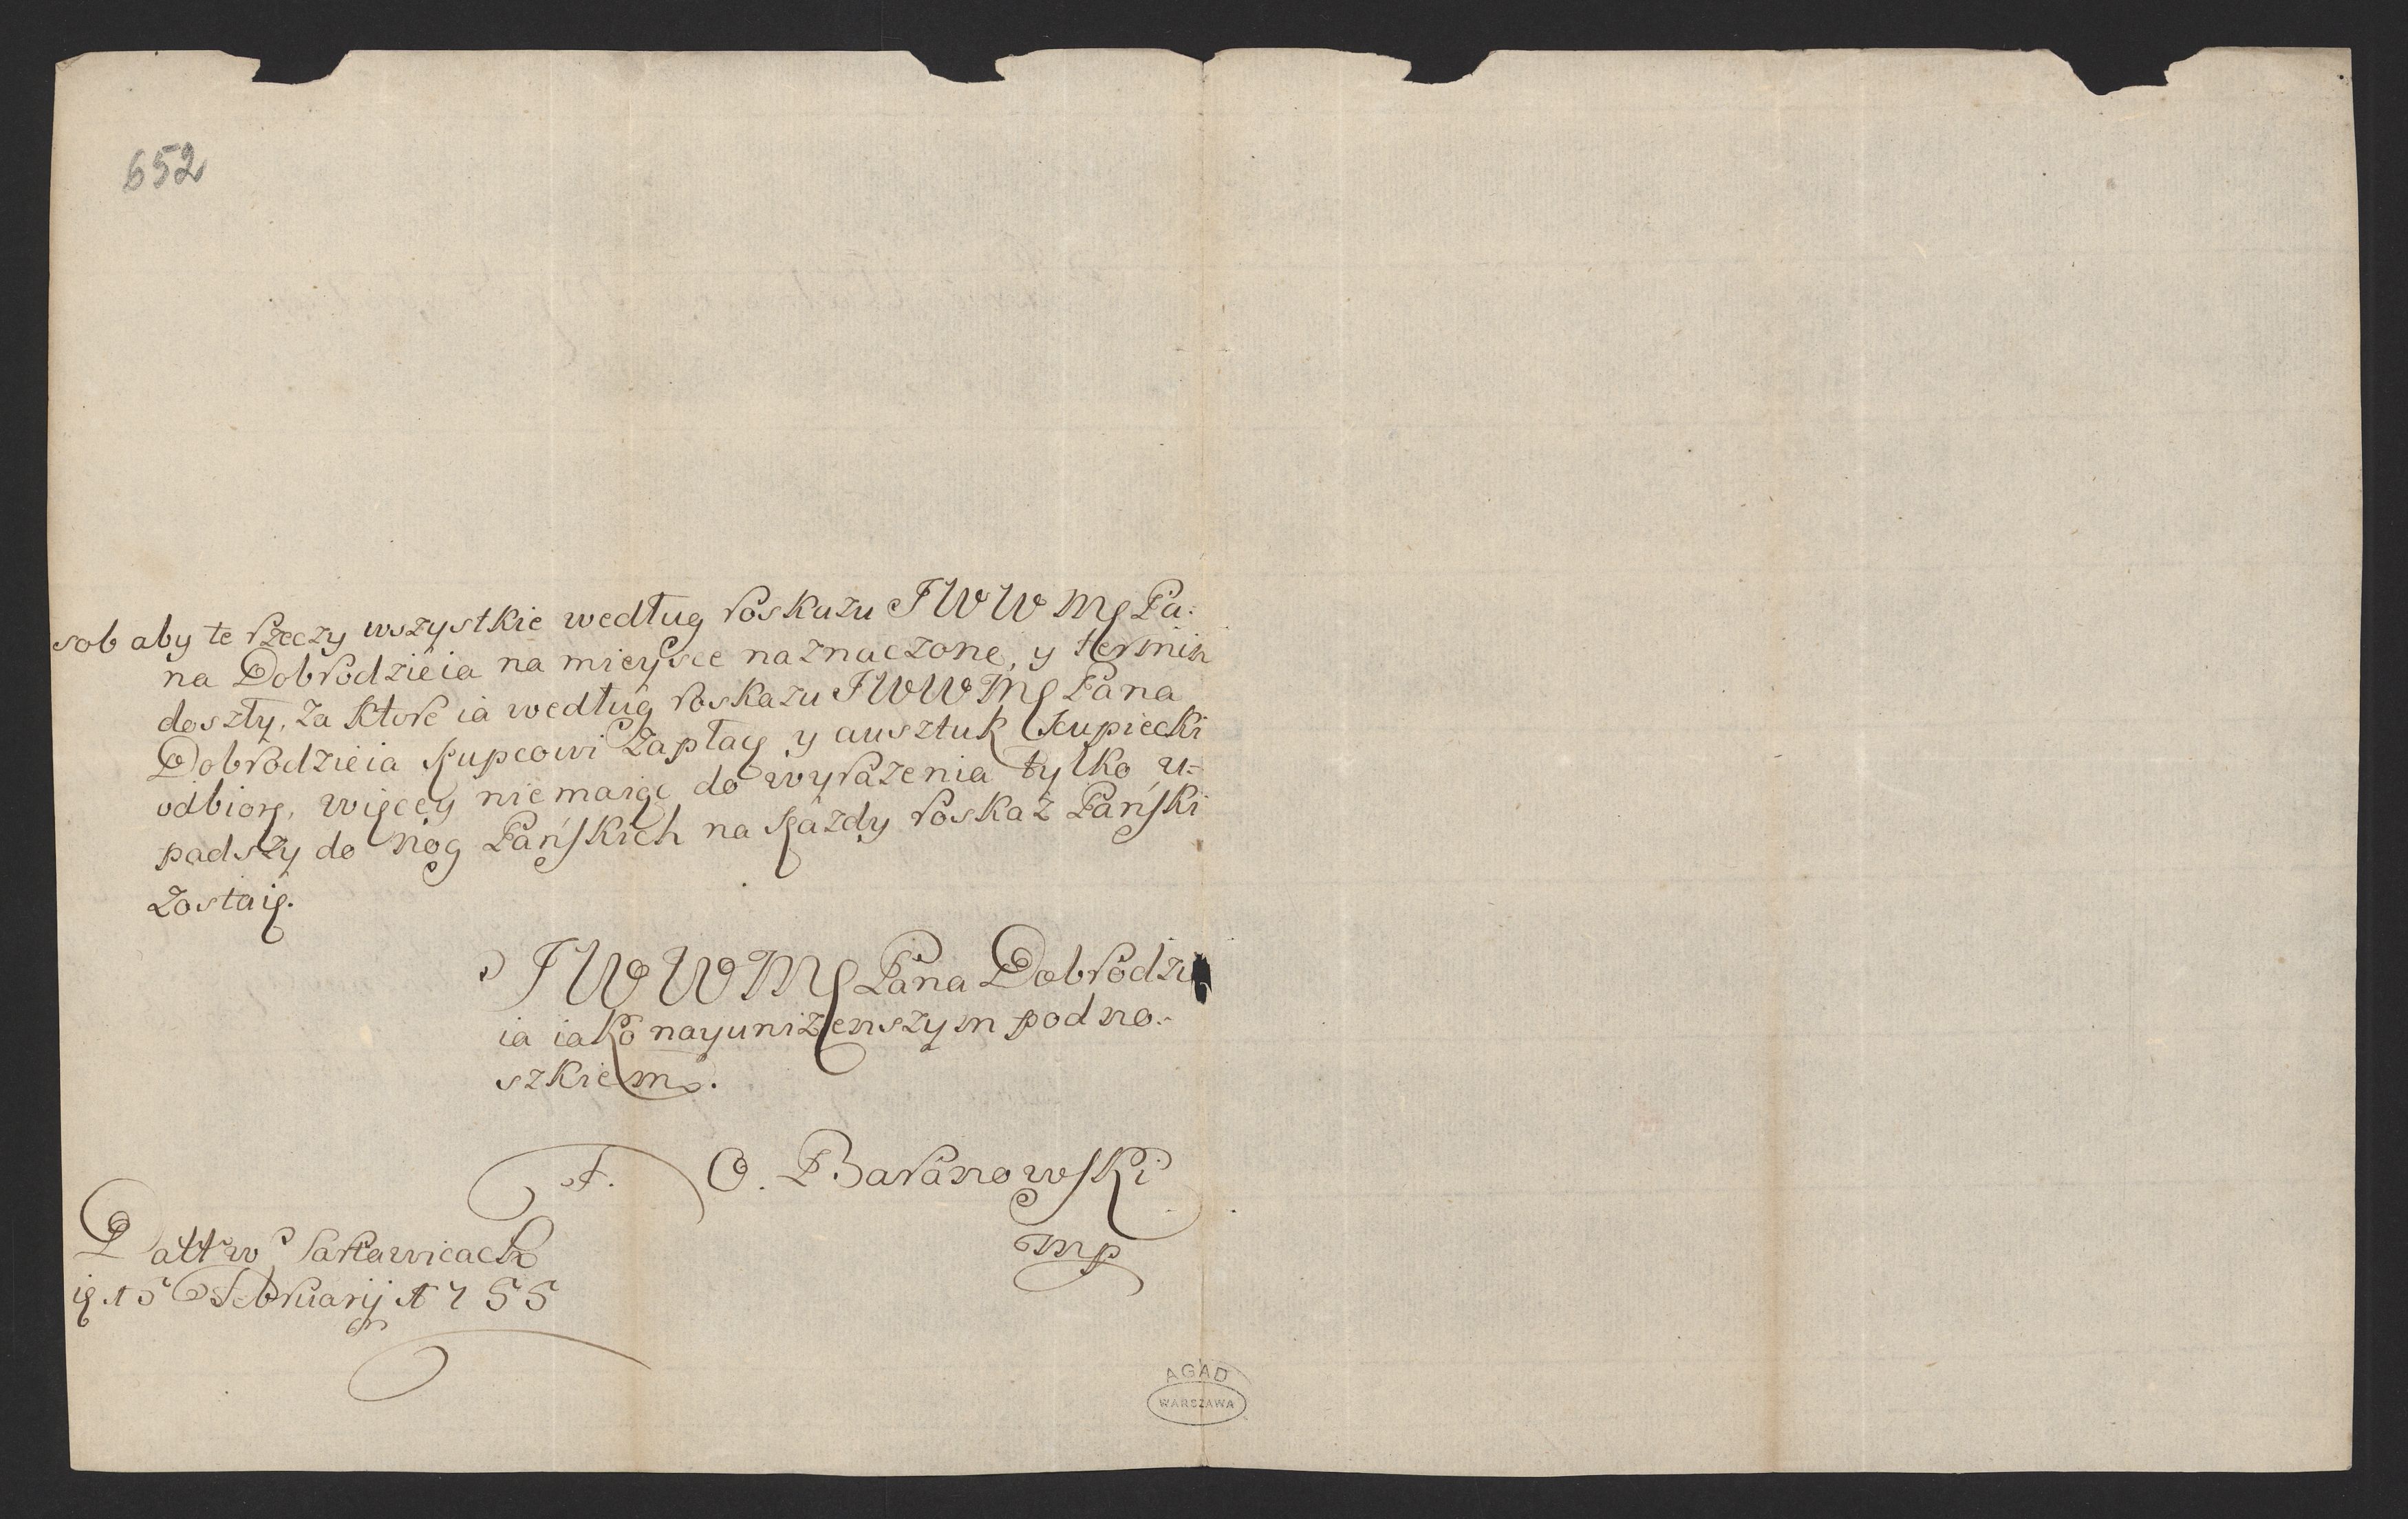 652
sob aby te rzeczy wszystkie według roskazu J W W Mę Pa:
na Dobrodzieia na mieysce naznaczone, y termin
doszły, za ktore ia według roskazu J W W Mę Pana
Dobrodzieia kupcowi zapłacę y ausztuk kupiecki
odbiorę, więcey niemaiąc do wyrażenia tylko u=
padszy do nog Pańskich na każdy roskaz Pański
zostaię.
J W W Mę Pana Dobrodzie
ia iako nayuniżenszym podno:
szkiem.
F. O. Baranowski
mp
Datt w Sartawicach
15 Februarij 1755
AGAD
WARSZAWA